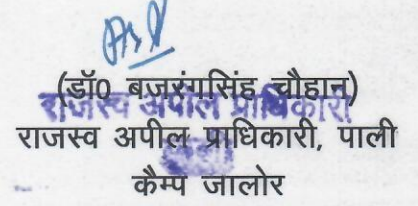 (डॉ0 बजरंगसिंह चौहान)
राजस्व अपील प्राधिकारी
राजस्व अपील प्राधिकारी, पाली
कैम्प जालोर